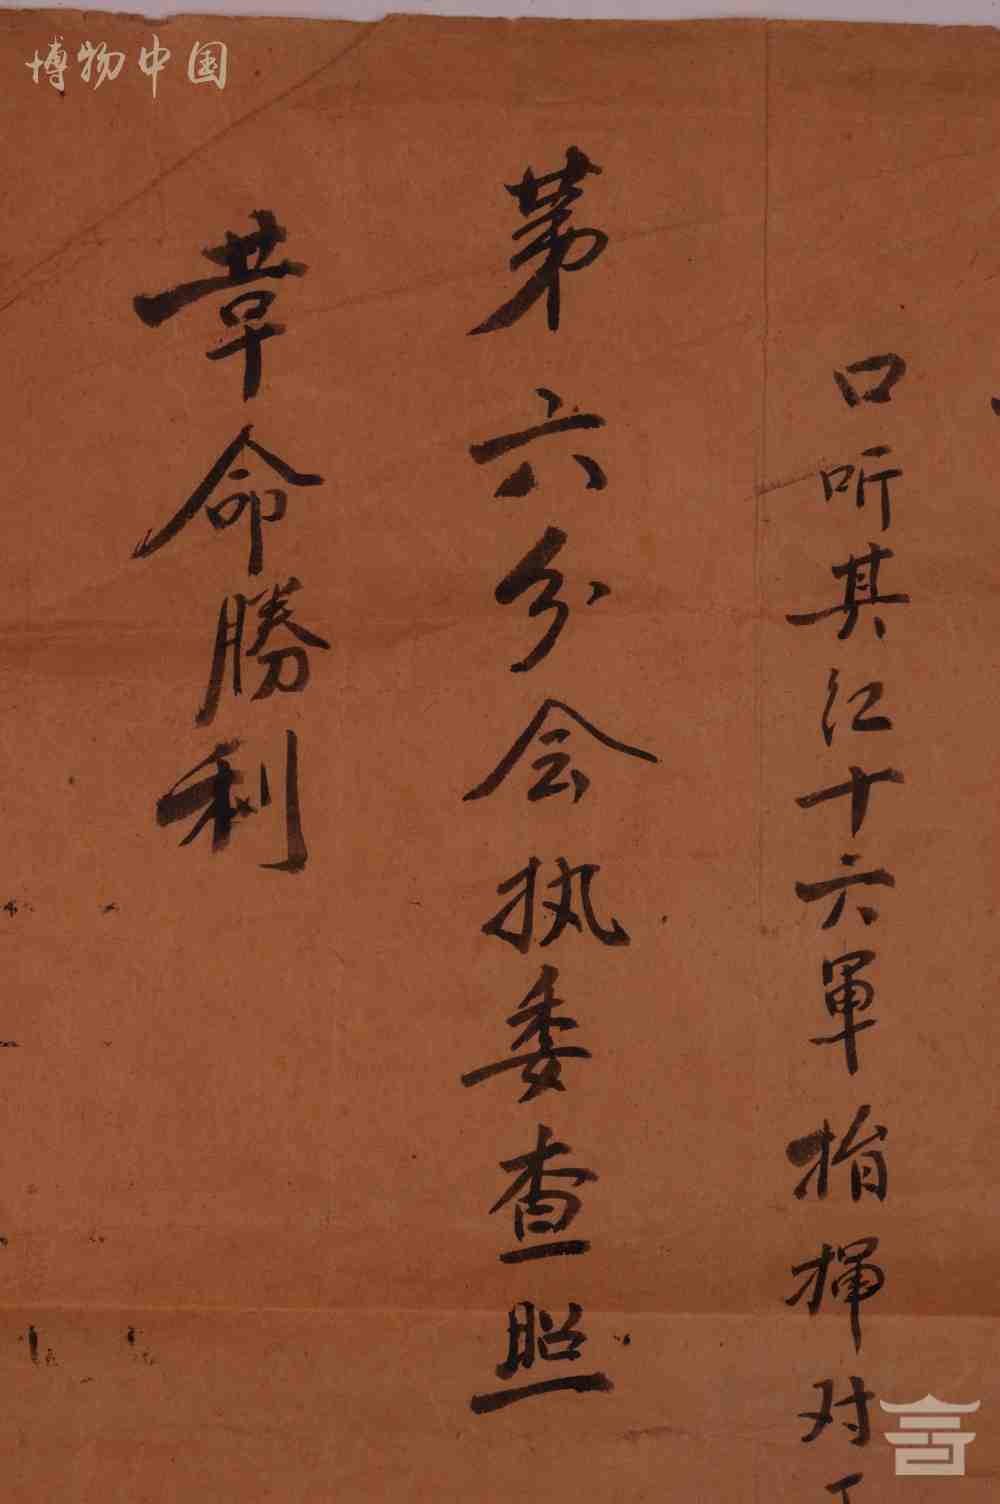 博物中国
口听其江十六軍指揮对
第六分会执委查照
革命勝利